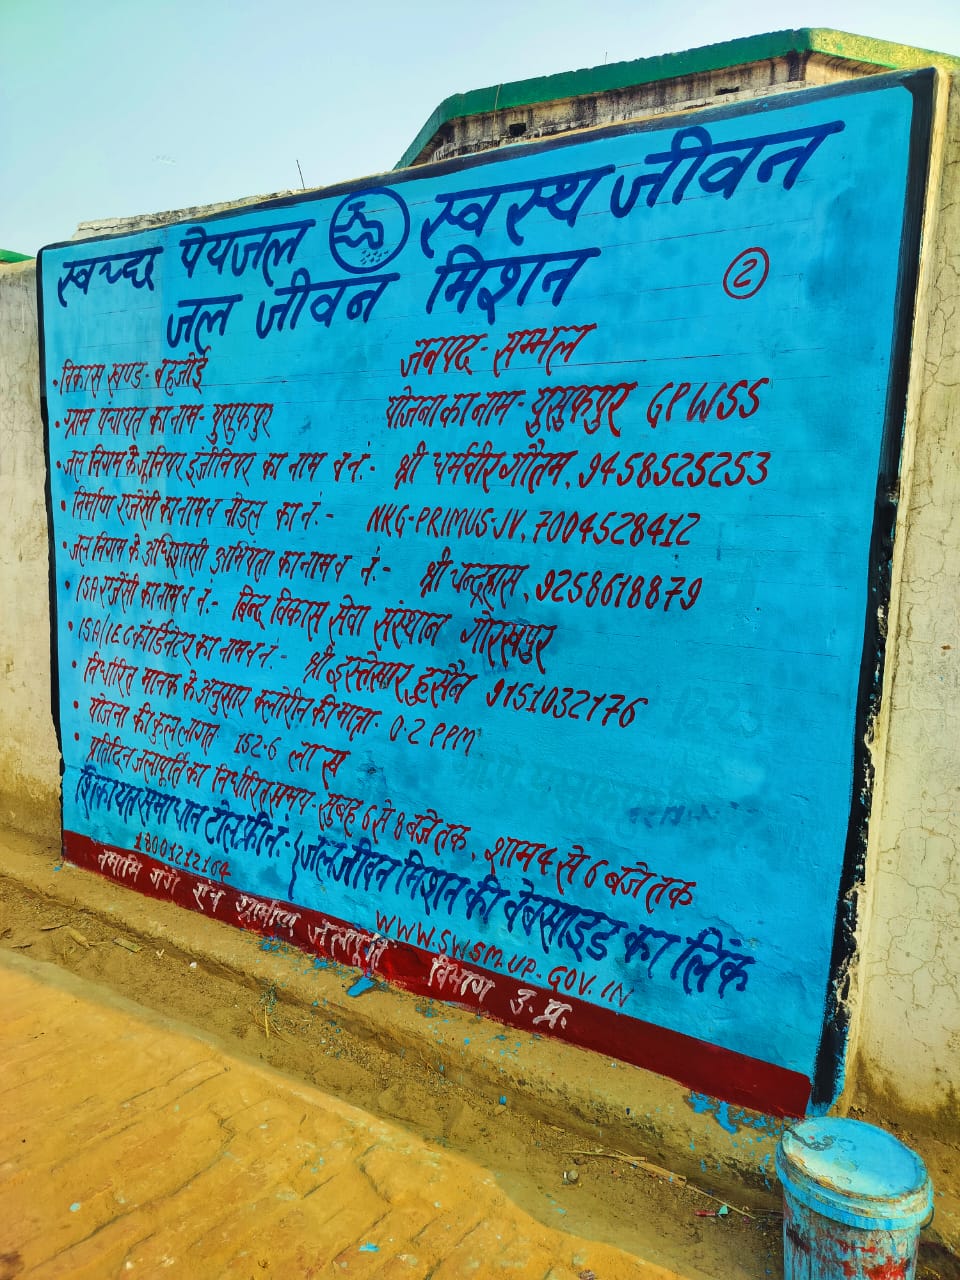 स्वच्छ पेयजल स्वस्थ जीवन
जल जीवन मिशन
2
• विकास खण्ड - बहजोई जनपद - सम्भल
• ग्राम पंचायत का नाम - युसुफपुर योजना का नाम - युसुफपुर GPWSS
• जल निगम के जूनियर इंजीनियर का नाम व नं:- श्री धर्मवीर गौतम, 9458525253
• निर्माण एजेंसी का नाम व नोडल का नं:- NKG-PRIMUS-JV. 7004528412
• जल निगम के अधिशासी अभियंता का नाम व नं:- श्री चन्द्रहास, 9258618879
• ISA एजेंसी का नाम व नं:- बिन्द विकास सेवा संस्थान गोरखपुर
• ISA/IEC कॉर्डिनेटर का नाम व नं:- श्री इस्तेखार हुसैन 9151032176
• निर्धारित मानक के अनुसार क्लोरीन की मात्रा- 0.2 PPM
• योजना की कुल लागत 152.6 लाख
• प्रतिदिन जलापूर्ति का निर्धारित समय- सुबह 6 से 8 बजे तक, शाम 4 से 6 बजे तक
शिकायत समाधान टोल फ्री नं:- जल जीवन मिशन की वेबसाइड का लिंक
18001212164 WWW.SWSM.UP.GOV.IN
नमामि गंगे एवं ग्रामीण जलापूर्ति विभाग उ.प्र.